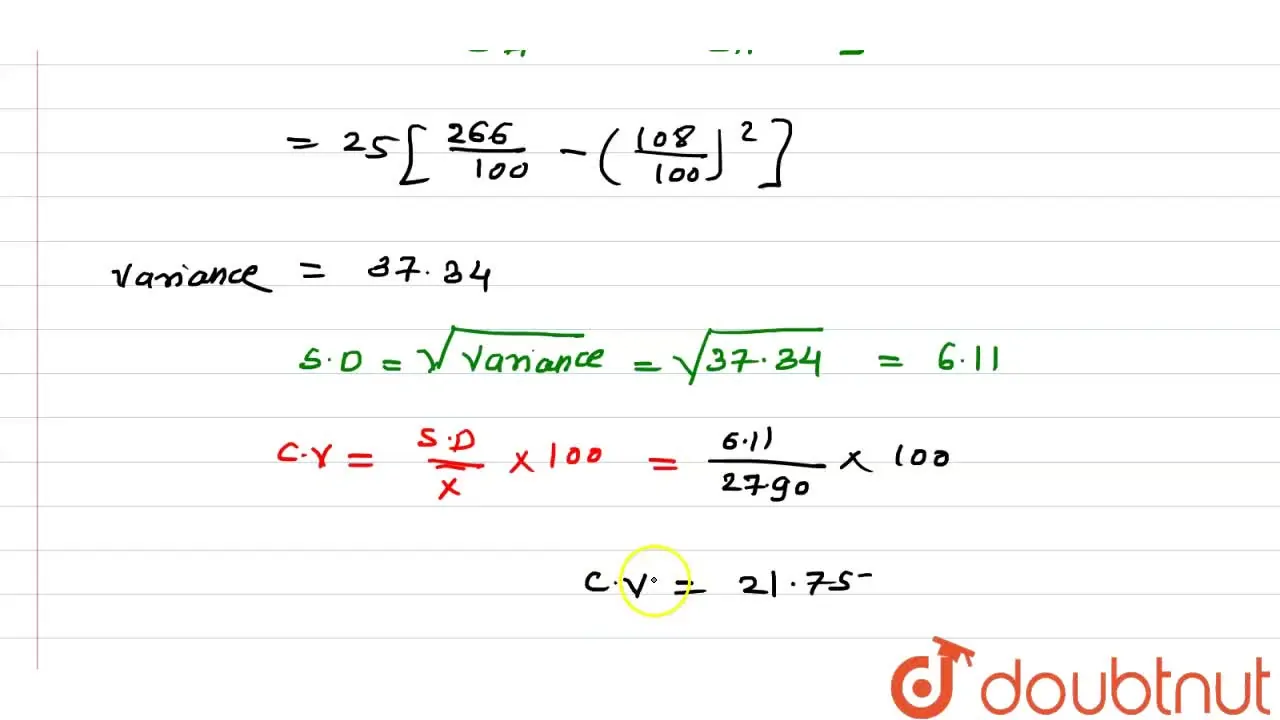 = 25 [ 266/100 - ( 108/100 )² ]
Variance = 37.34
S.D = √Variance = √37.34 = 6.11
C.V = S.D/x̄ × 100 = 6.11/27.90 × 100
C.V. = 21.75
doubtnut